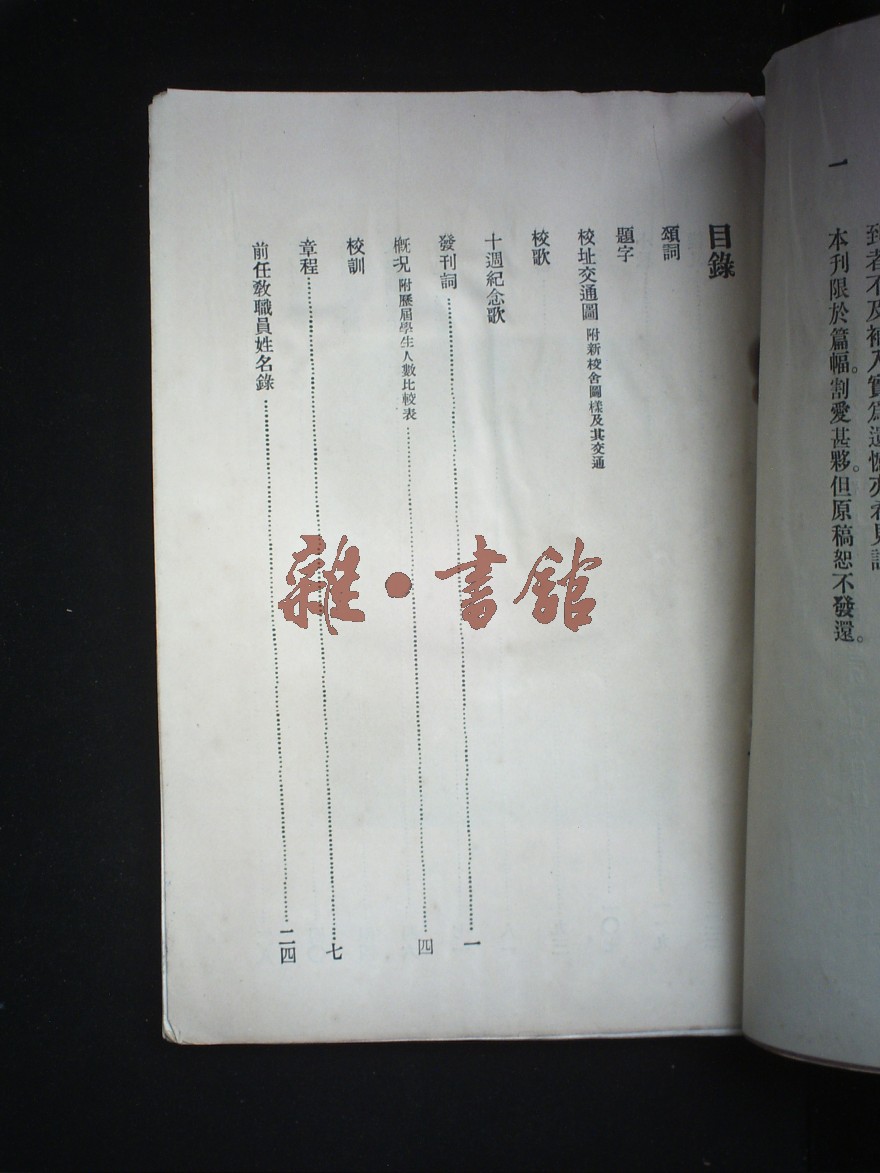 到者不及補入實爲遺憾亦希見諒
一　本刊限於篇幅。割愛甚夥。但原稿恕不發還。
目錄
頌詞
題字
校址交通圖 附新校舍圖樣及其交通
校歌
十週紀念歌
發刊詞……一
概況 附歷屆學生人數比較表……四
校訓
章程……七
前任敎職員姓名錄……二四
雜·書館